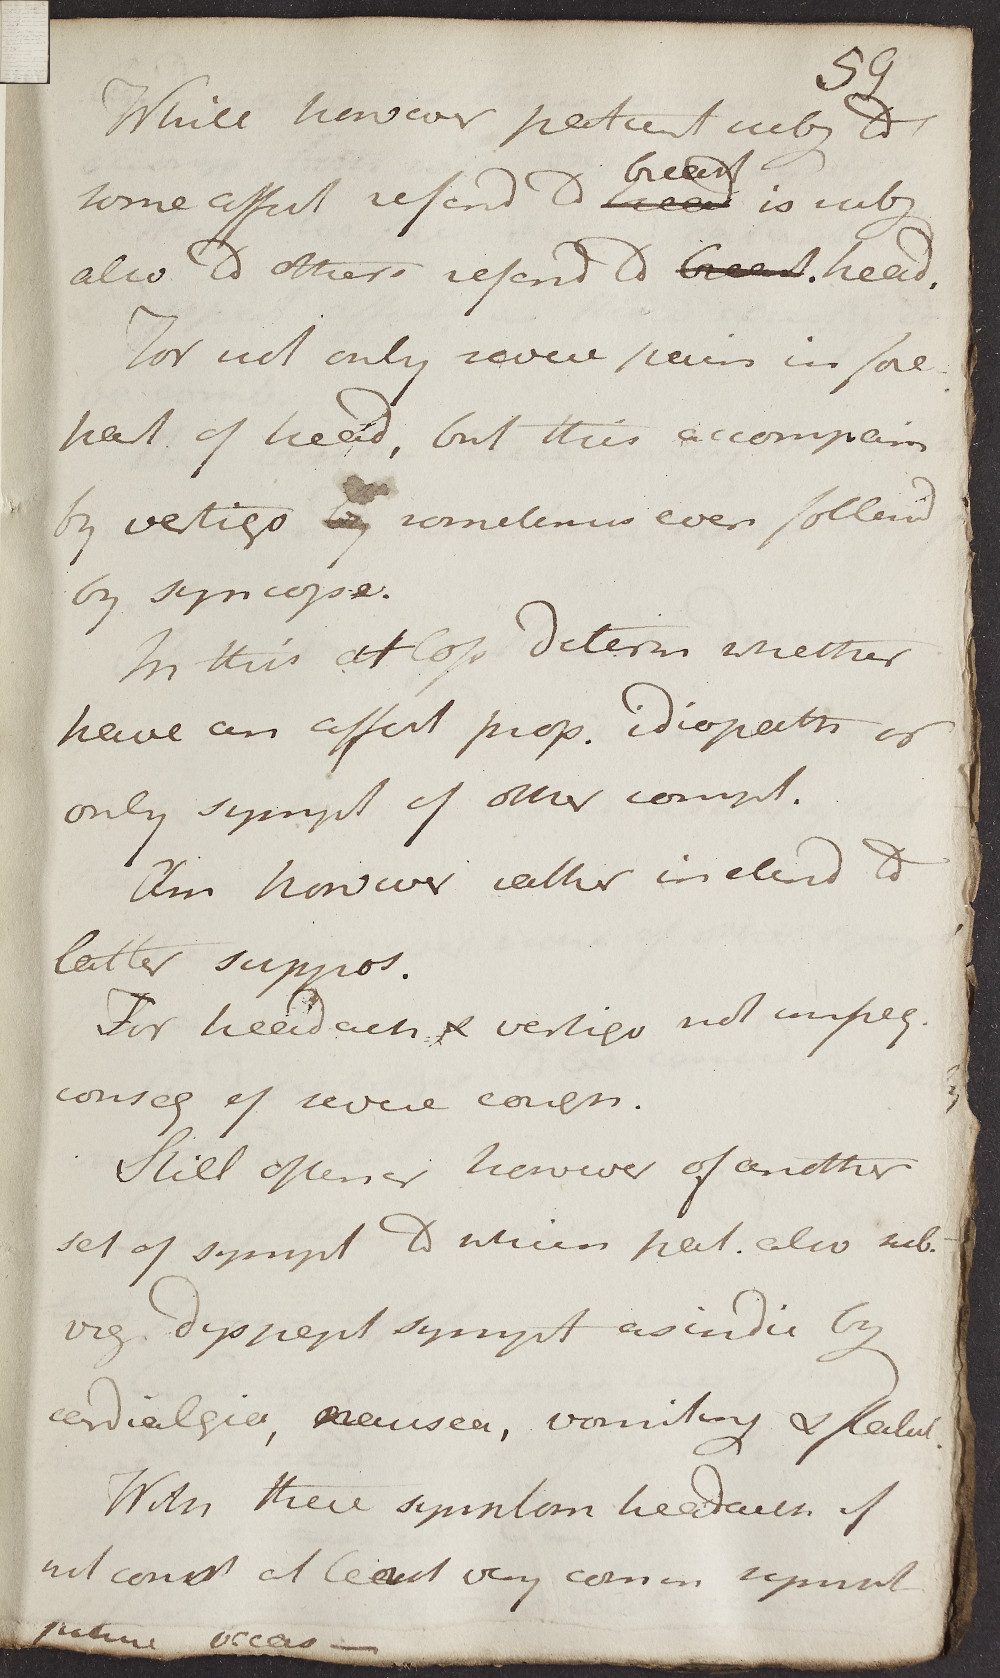 59
While however patient subj to
some affect referrd to ~~head~~ breast is subj
also to others referrd to ~~breast~~. head.
For not only severe pain in fore-
part of head, but this accompain
by vertigo ~~by~~ sometimes even followd
by syncope.
In this at loss determ whether
have an affect prop. idiopath or
only sympt of other compt.
Am however rather inclind to
latter suppos.
For headach & vertigo not unfreq.
conseq of severe cough.
Still oftener however of another
set of sympt to which pat. also sub.
viz. dyspept sympt as indic by
cardialgia, nausea, vomiting & flatul.
With these symptom headach if
not const at least very comm sympt
future occas —